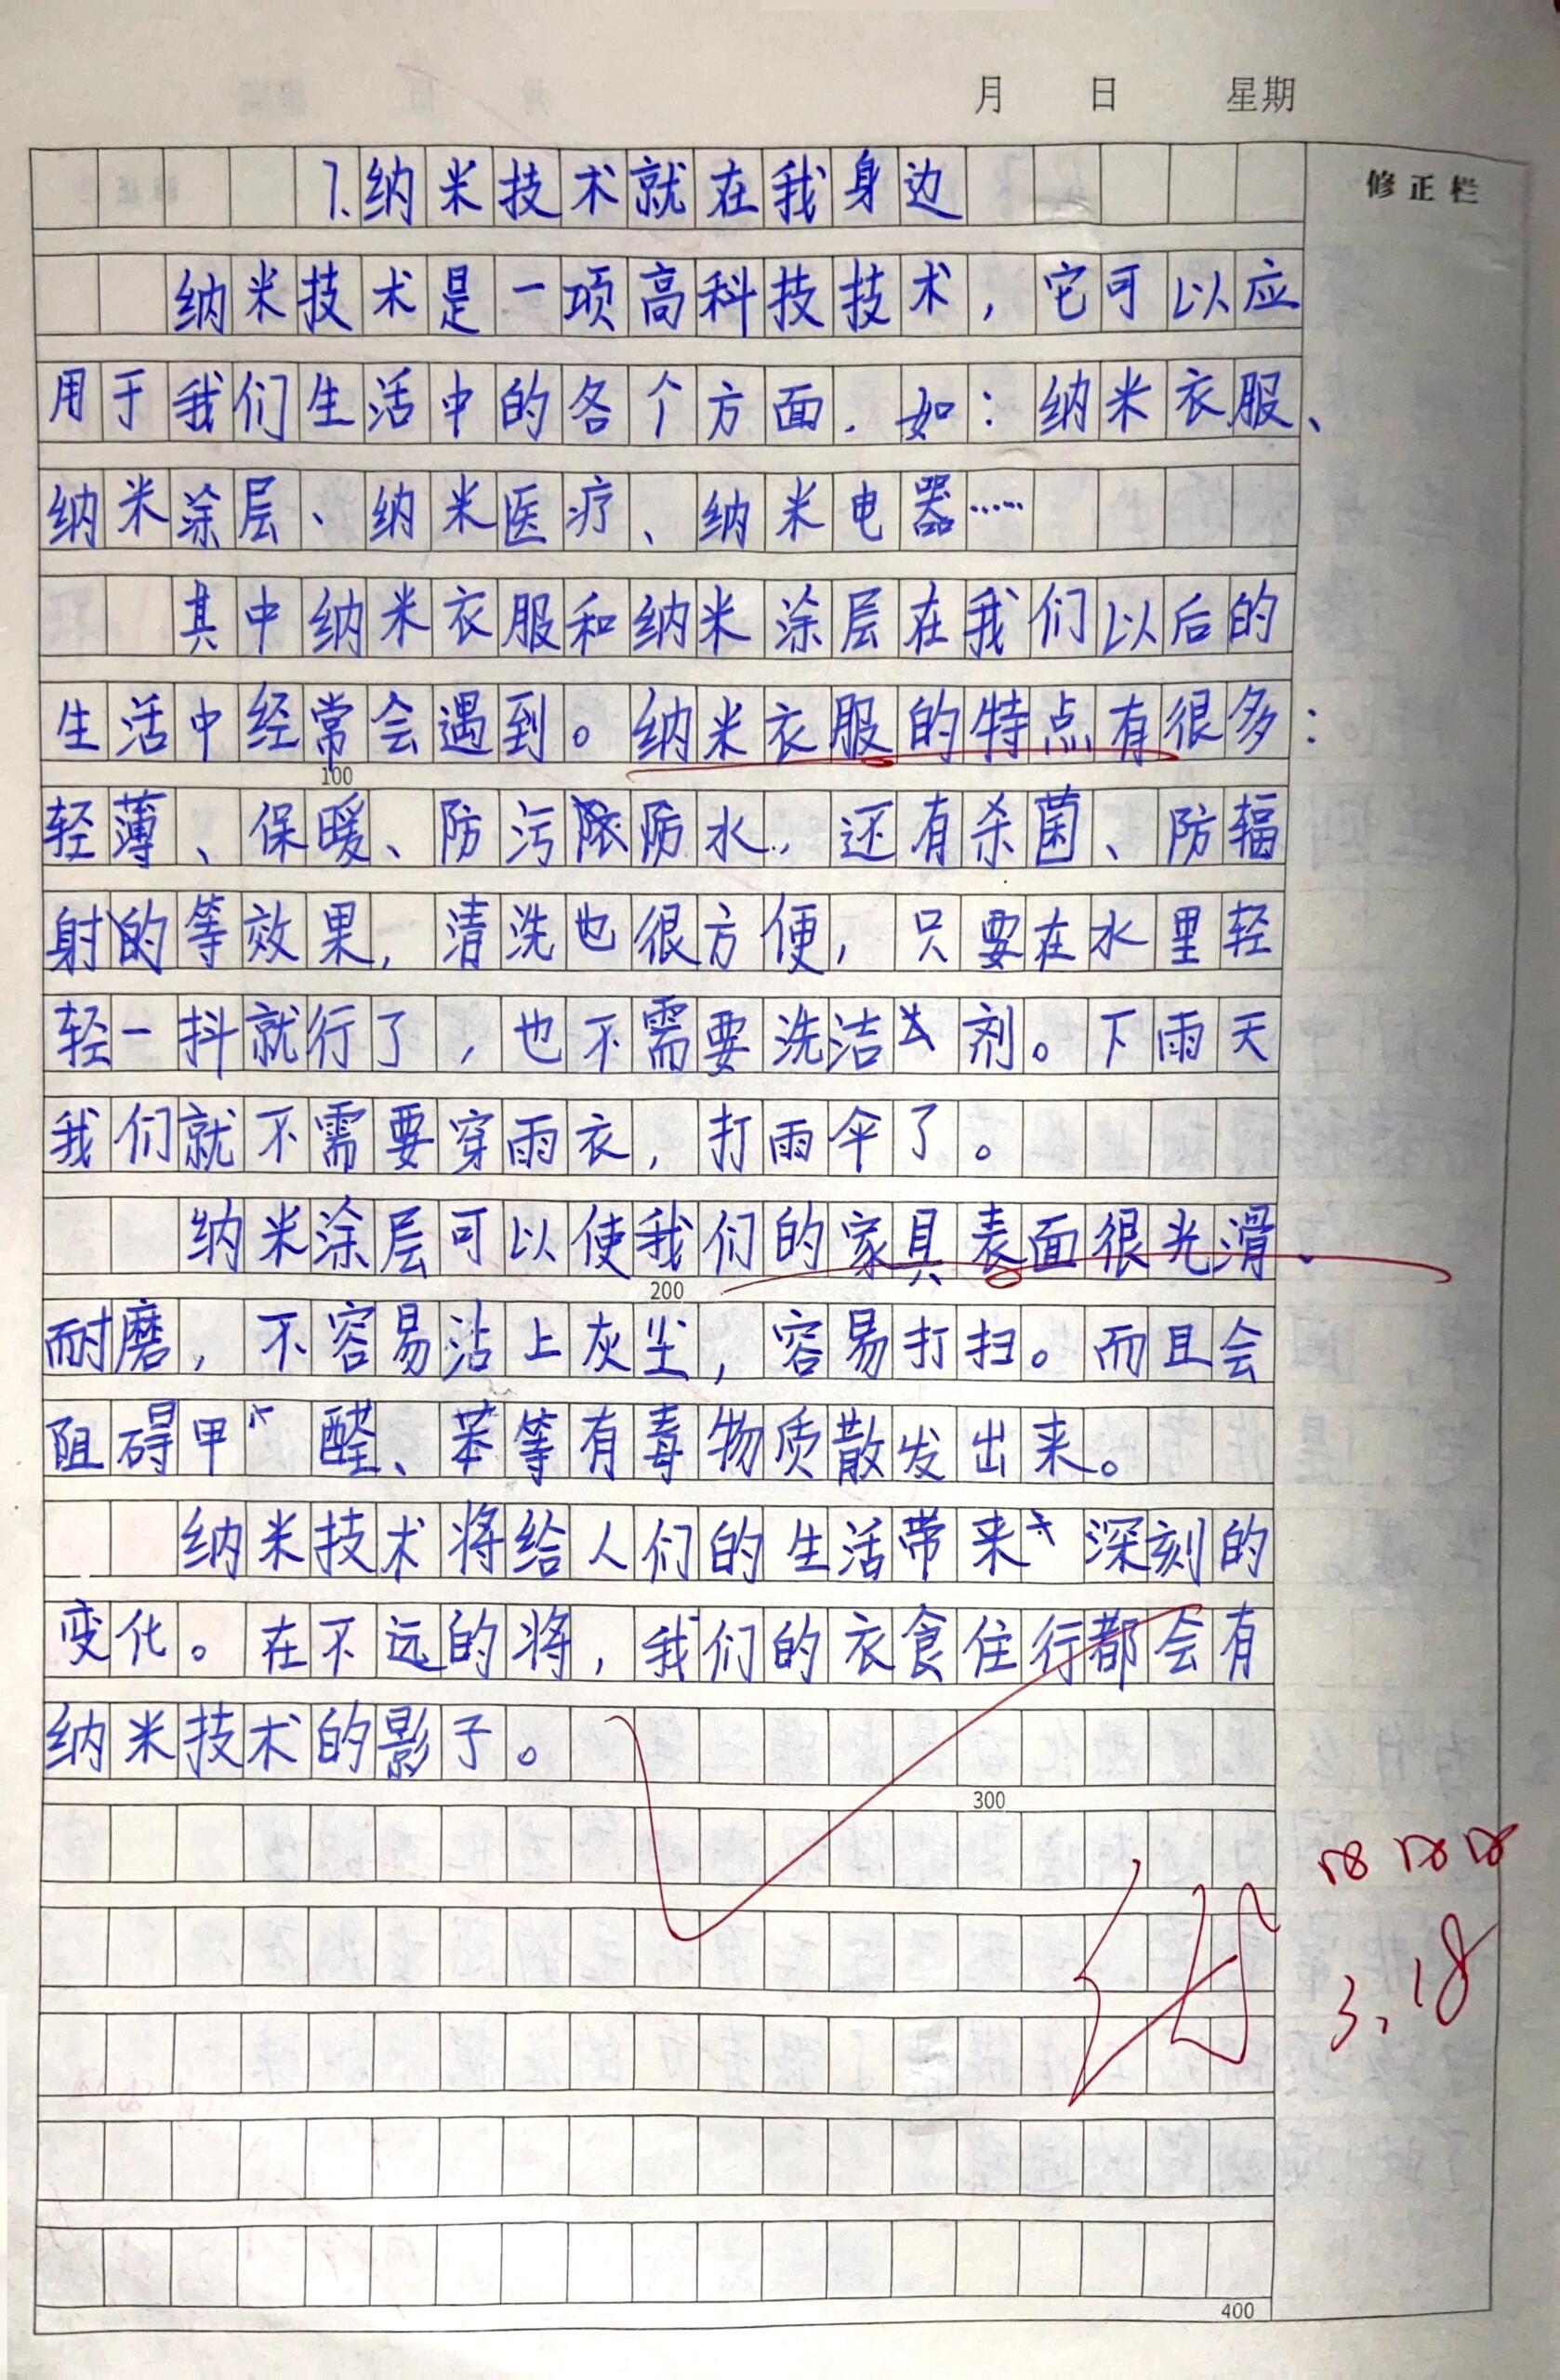 月 日 星期
修正栏
7.纳米技术就在我身边
纳米技术是一项高科技技术，它可以应
用于我们生活中的各个方面.如：纳米衣服、
纳米涂层、纳米医疗、纳米电器……
其中纳米衣服和纳米涂层在我们以后的
生活中经常会遇到。纳米衣服的特点有很多：
100
轻薄、保暖、防污防水，还有杀菌、防辐
射的等效果，清洗也很方便，只要在水里轻
轻一抖就行了，也不需要洗洁剂。下雨天
我们就不需要穿雨衣，打雨伞了。
纳米涂层可以使我们的家具表面很光滑、
200
耐磨，不容易沾上灰尘，容易打扫。而且会
阻碍甲醛、苯等有毒物质散发出来。
纳米技术将给人们的生活带来深刻的
变化。在不远的将，我们的衣食住行都会有
纳米技术的影子。
300
3.18
400